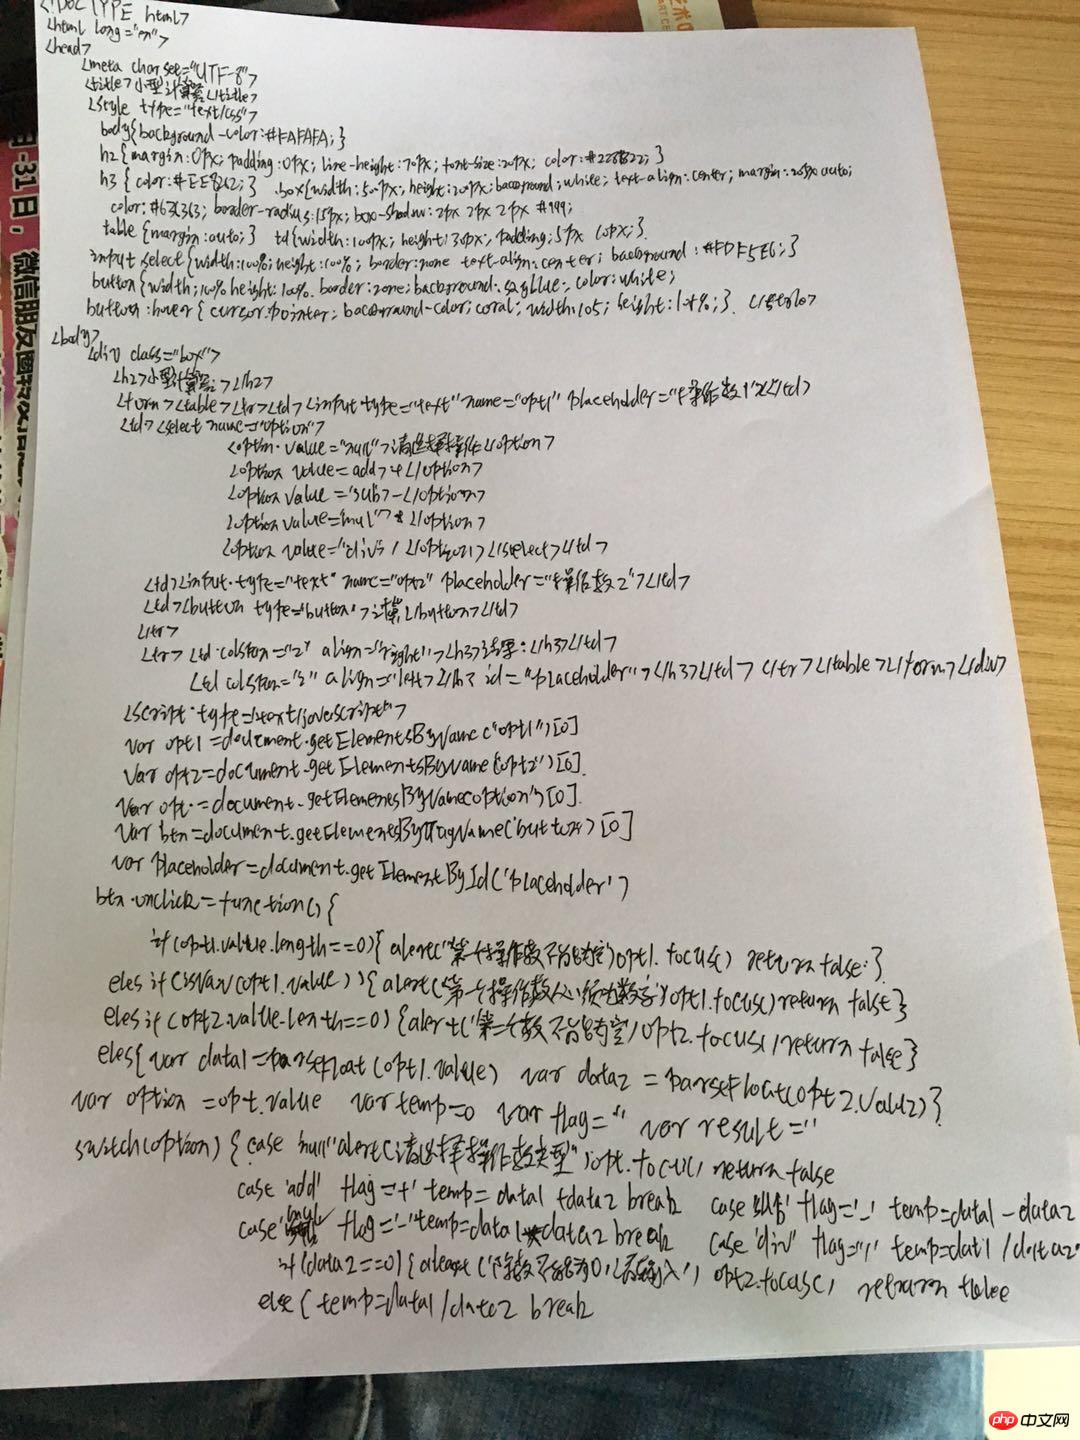 <!DOCTYPE html>
<html long="en">
<head>
<meta charset="UTF-8">
<title>小型计算器</title>
<style type="text/css">
body{background-color:#FAFAFA;}
h2{margin:0px; padding:0px; line-height:70px; font-size:20px; color:#228B22;}
h3{color:#EE8262;} .box{width:500px; height:200px; background:white; text-align:center; margin:205px auto;
color:#636363; border-radius:15px; box-shadow:2px 2px 2px #999;
table{margin:auto;} td{width:100px; height:30px; padding:5px 10px;}
input select{width:100%; height:100%; border:none text-align:center; background:#FDF5E6;}
button{width:100% height:100%. border:none; background:skyblue; color:white;
button:hover{cursor:pointer; background-color:coral; width:105; height:1%;} </style>
<body>
<div class="box">
<h2>小型计算器</h2>
<form><table><tr><td><input type="text" name="opt1" placeholder="操作数1"></td>
<td><select name="option">
<option value="null">请选择操作</option>
<option value=add>+</option>
<option value='sub'>-</option>
<option value='mul'>*</option>
<option value="div"> / </option></select></td>
<td><input type="text" name="opt2" placeholder="操作数2"></td>
<td><button type="button">计算</button></td>
</tr>
<tr> <td colspan="2" align="right"><h3>结果:</h3></td>
<td colspan="2" align="left"><h3 id="placeholder"></h3></td> </tr></table></form></div>
<script type="text/javascript">
var opt1=document.getElementsByName("opt1")[0]
Var opt2=document.getElementsByName('opt2')[0].
Var opt=document.getElementsByName('option')[0].
Var btn=document.getElementsByTagName('button')[0]
var placeholder=document.getElementById('placeholder')
btn.onclick=function(){
if(opt1.value.length==0){alert("第一个操作数不能为空")opt1.focus() return false;}
eles if(isNaN(opt1.value)){alert('第一个操作数必须为数字')opt1.focus()return false}
eles if(opt2.value.lenth==0){alert('第二个数不能为空')opt2.focus()return false}
eles{var data1=parseFloat(opt1.value) var data2=parseFloat(opt2.value)}
var option=opt.value var temp=0 var flag='' var result=''
switch(option){case 'null' alert('请选择操作数类型')opt.focu() return false
case 'add' flag='+' temp=data1+data2 break case 'sub' flag='-' temp=data1-data2
case 'mul' flag='-' temp=data1*data2 break case 'div' flag='/' temp=dat1/data2
if(data2==0){aleart('除数不能为0,输入') opt2.focus() return false
else{temp=data1/data2 break
31日,微信朋友圈
php 中文网